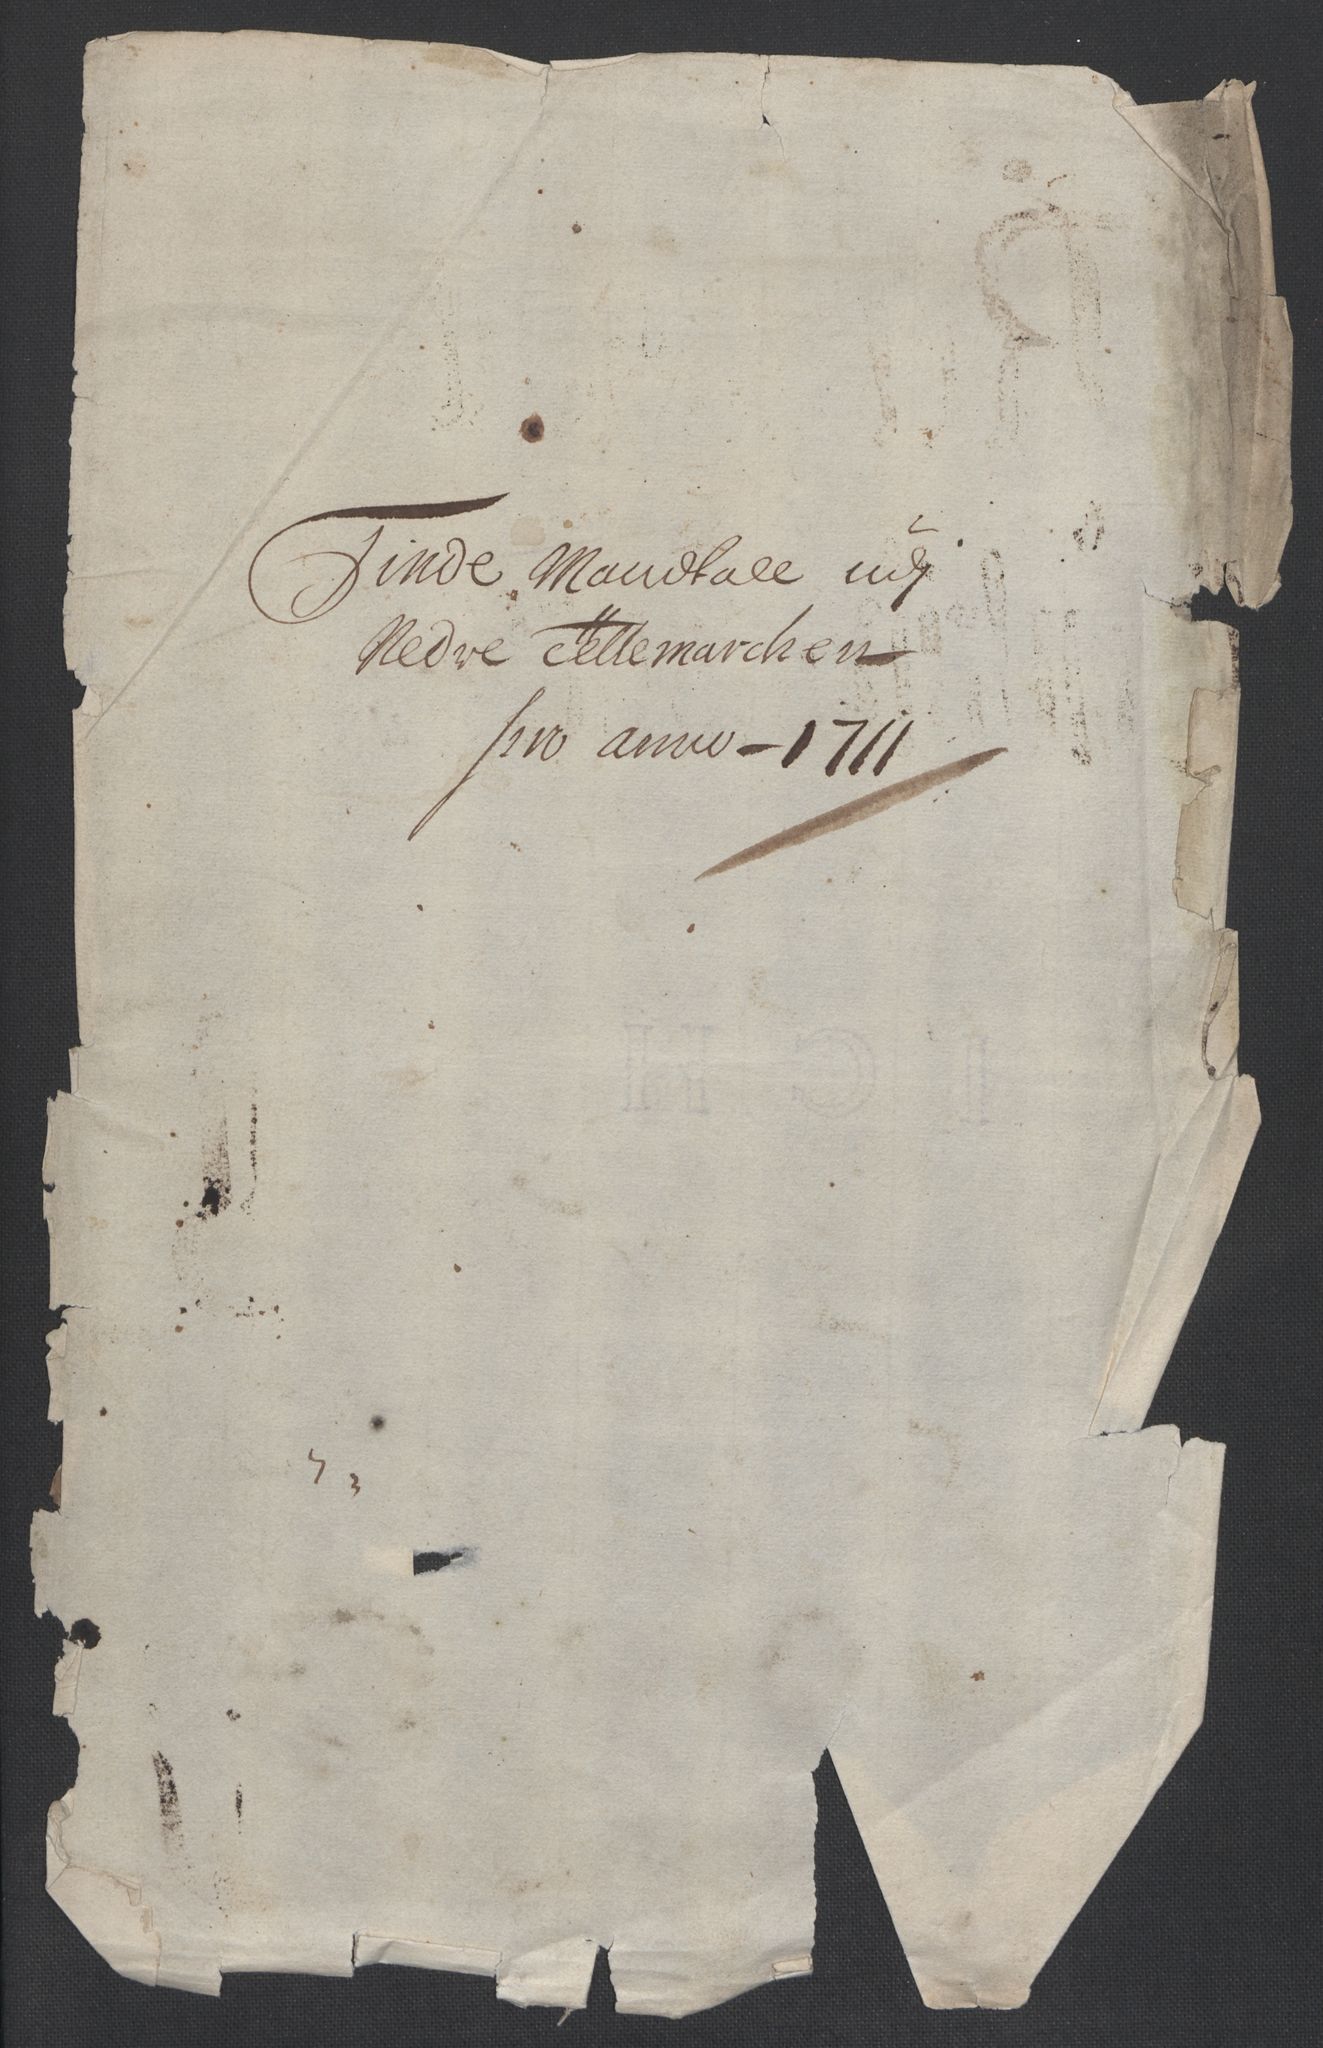 Tinde Mandtall udj
Nedre Tellemarchen
pro anno - 1711